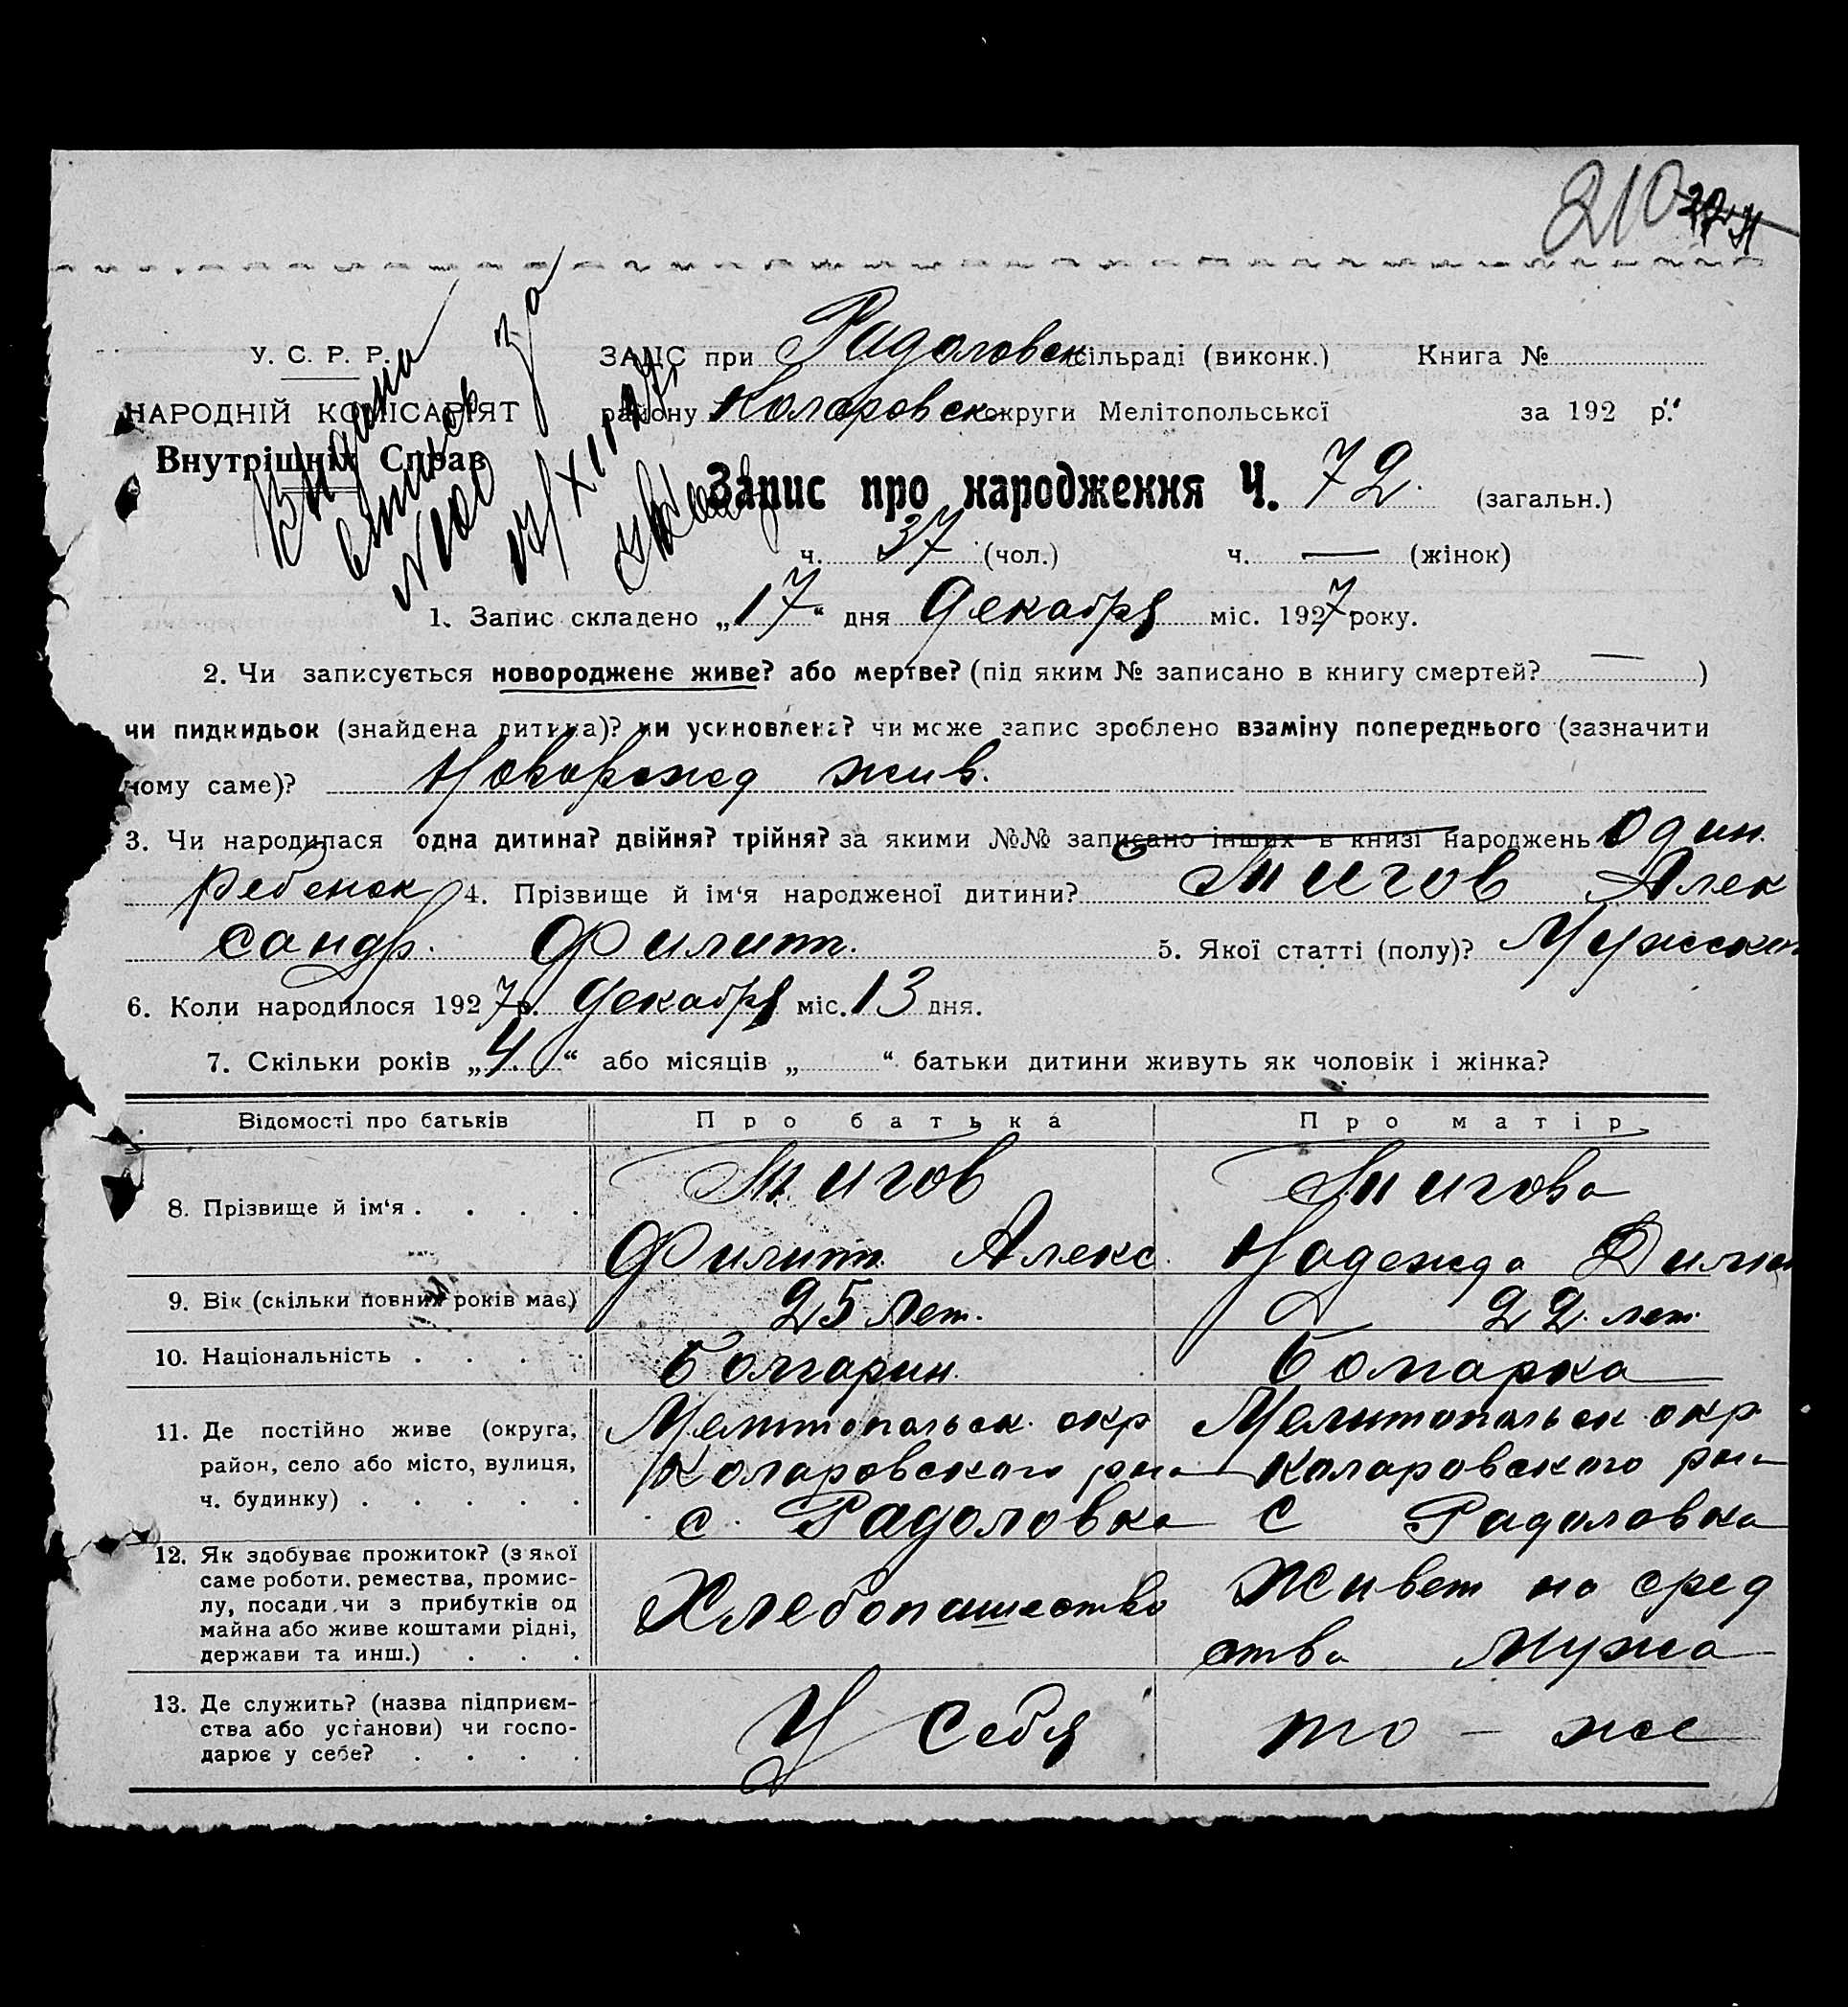 210
У. С. Р. Р.
НАРОДНІЙ КОМІСАРІЯТ
Внутрішніх Справ
Видана
выпись за
N 100
ЗАПС при Радоловск сільраді (виконк.) Книга №
району Коларовск округи Мелітопольської за 192 р.
Запис про народження Ч. 72. (загальн.)
ч. 37 (чол.) ч. — (жінок)
1. Запис складено „17“ дня Декабря міс. 1927 року.
2. Чи записується новороджене живе? або мертве? (під яким № записано в книгу смертей? — )
чи пидкидьок (знайдена дитина)? чи усиновлена? чи може запис зроблено взаміну попереднього (зазначити
чому саме)? Новорожд жив.
3. Чи народилася одна дитина? двійня? трійня? за якими №№ записано інших в книзі народжень Один
ребенок 4. Прізвище й ім‘я народженої дитини? Тигов Алек
сандр. Филипп. 5. Якої статті (полу)? Мужской
6. Коли народилося 1927 р. Декабря міс. 13 дня.
7. Скільки років „4.“ або місяців „ “ батьки дитини живуть як чоловік і жінка?
Відомості про батьків Про батька Про матір
8. Прізвище й ім‘я . . . . Тигов Тигова
Филипп. Алекс. Надежда
9. Вік (скільки повних років має) 25 лет. 22 лет.
10. Національність . . . . Болгарин. Болгарка
11. Де постійно живе (округа, Мелитопольск. окр Мелитопольск окр.
район, село або місто, вулиця, Коларовского рна Коларовского рна
ч. будинку) . . . . . с. Радоловка с Радоловка
12. Як здобуває прожиток? (з якої
саме роботи, ремества, промис-
лу, посади, чи з прибутків од
майна або живе коштами рідні,
держави та инш.) . . .
Хлебопашество Живет на сред
ства мужа
13. Де служить? (назва підприєм-
ства або установи) чи госпо-
дарює у себе? . . . .
У себя то – же